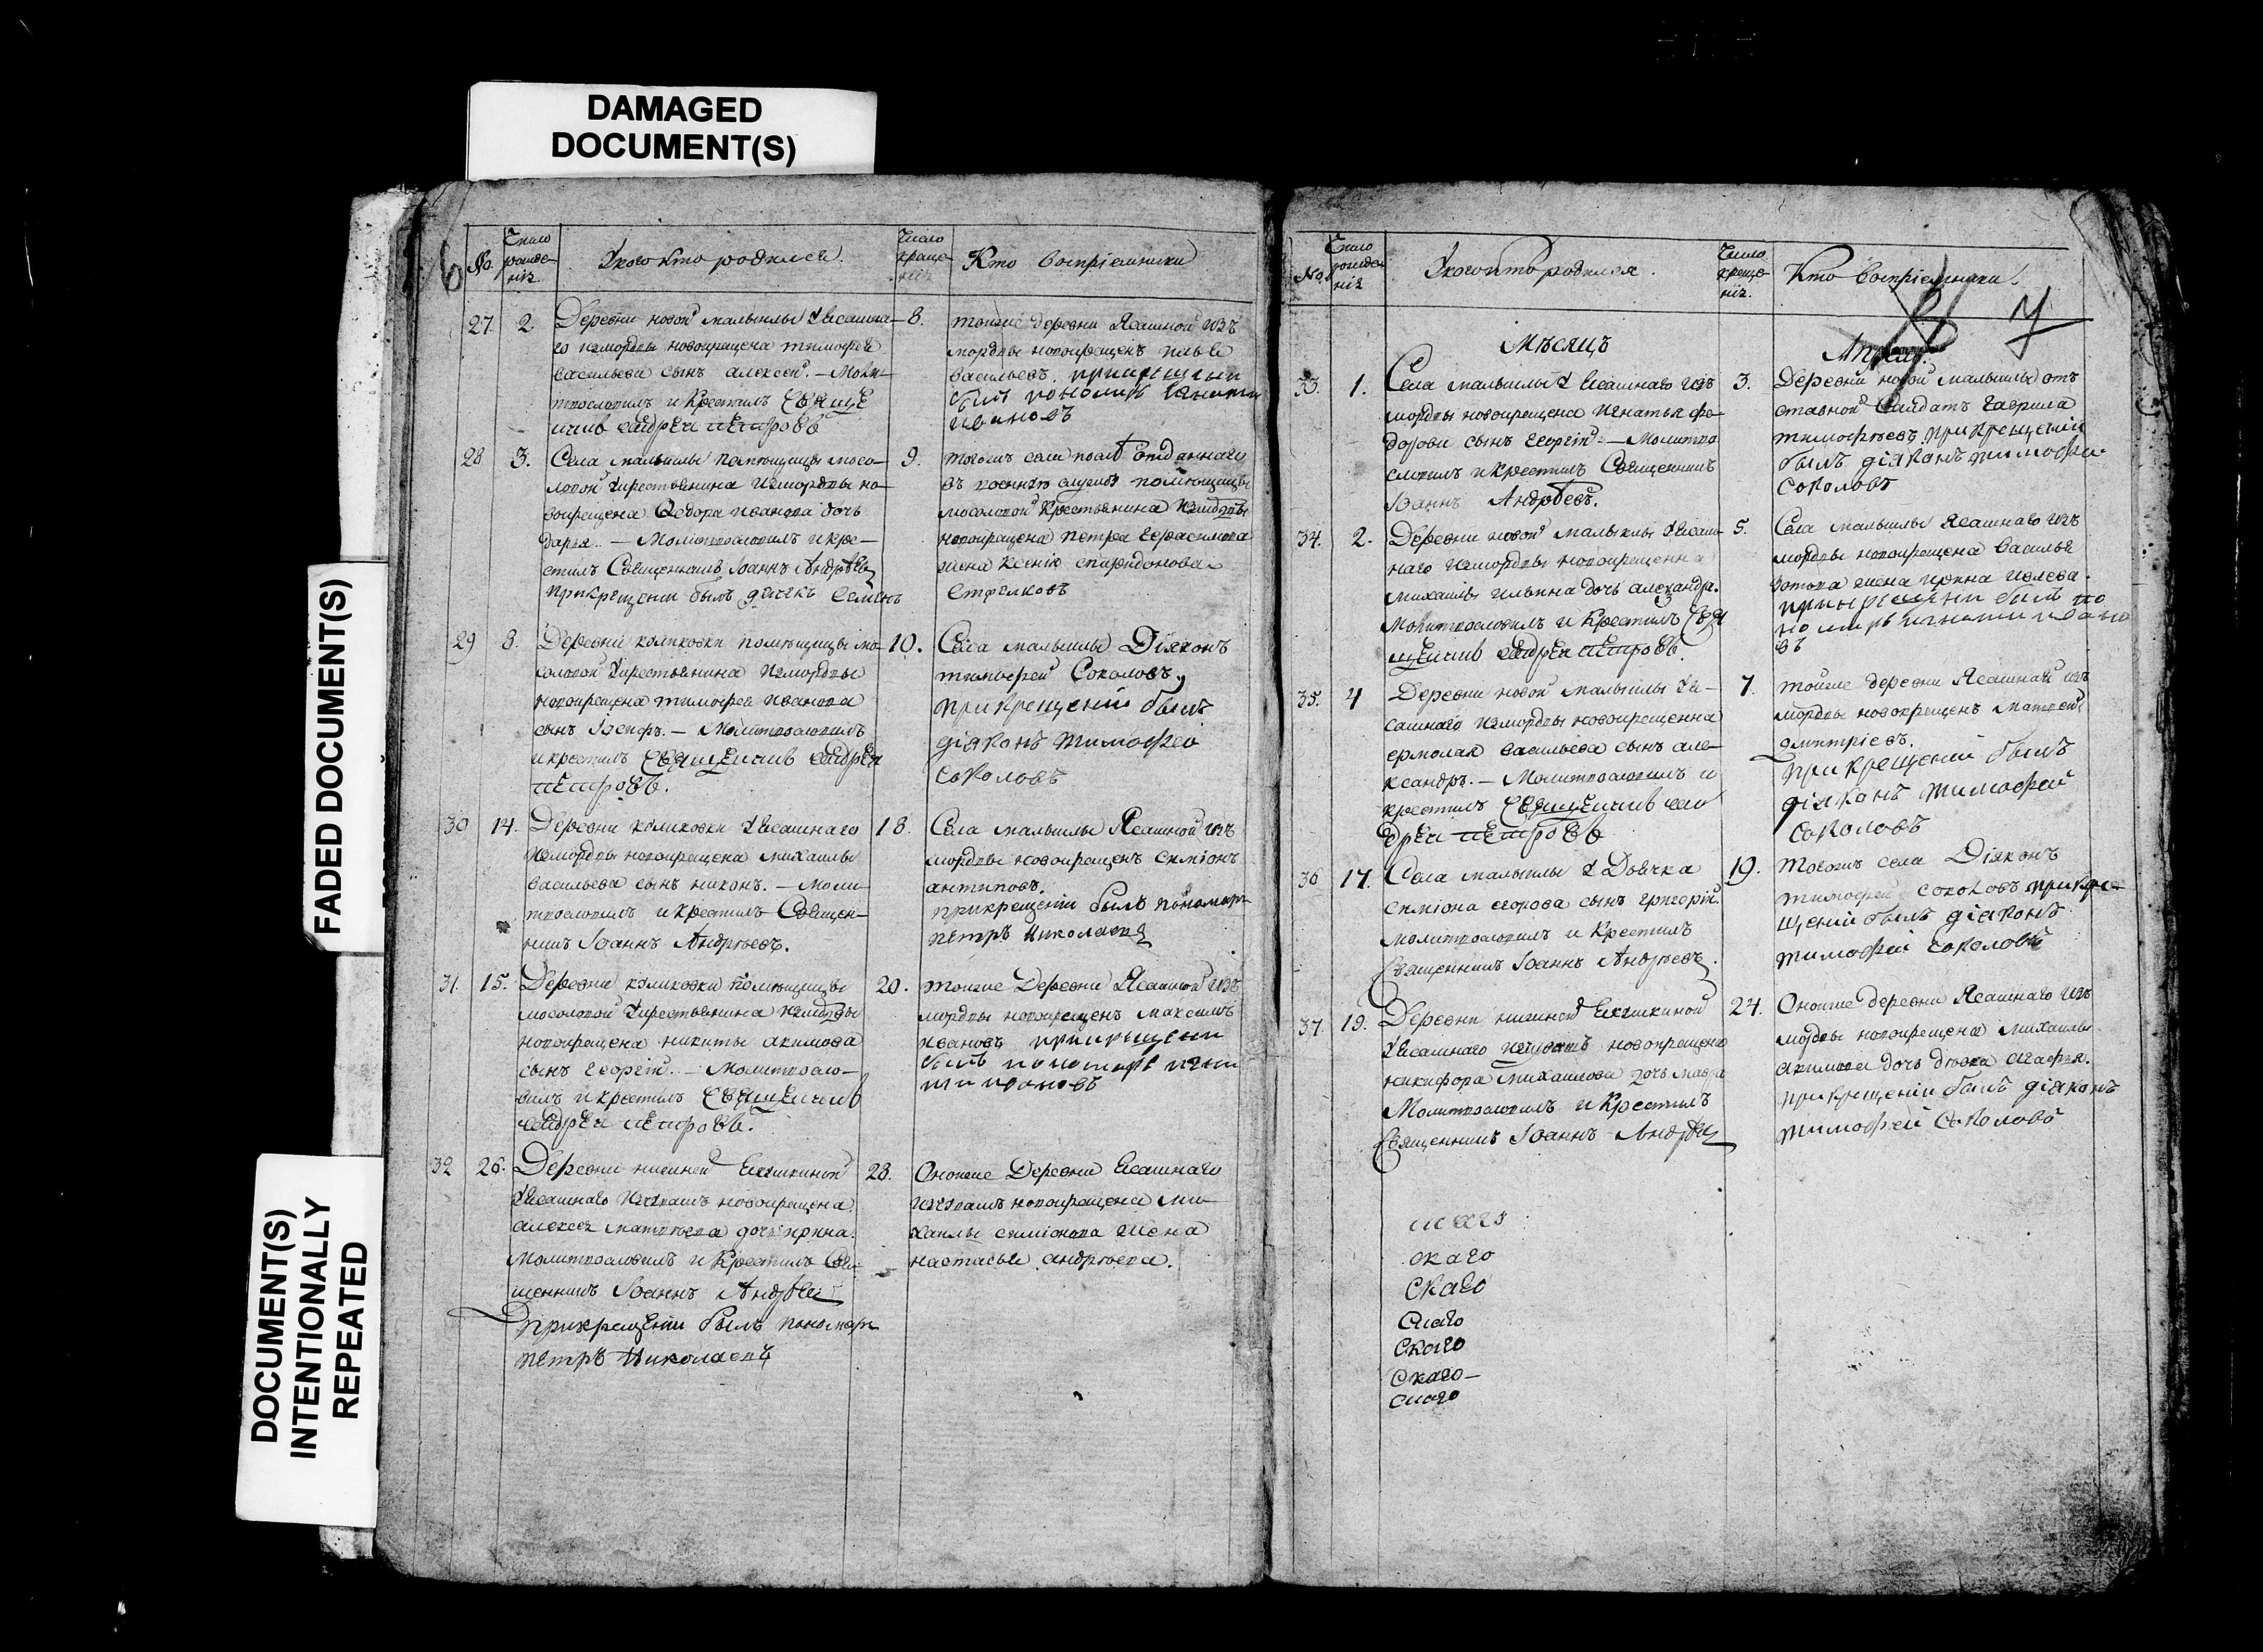 DAMAGED
DOCUMENT(S)
FADED DOCUMENT(S)
DOCUMENT(S)
INTENTIONALLY
REPEATED
6
No.
Число
рожде-
нія.
У кого кто родился.
Число
креще-
нія
Кто воспріемники
27. 2.
Деревни новой малыклы У Ясашна-
го измордвы новокрещена тимофея
васильева сынъ алексей. — Моли-
твословилъ и Крестилъ Священ
никъ андрей петровъ
8.
тоиже деревни Ясашной изъ
мордвы новокрещенъ
васильевъ. прикрещении
былъ пономарь игнати
ивановъ
28 3.
Села малыклы помещицы мосо-
ловой У крестьянина измордвы но-
вокрещена Федора иванова дочь
дарья. — Молитвословилъ и кре-
стилъ Священникъ Іоаннъ Андреевъ
прикрещении былъ дьячекъ семенъ
9.
тогожъ села после отданнаго
въ военную службу помещицы
мосоловой крестьянина измордвы
новокрещена петра герасимова
жена ксенія спиридонова
Стрелковъ
29 8.
Деревни куликовки помещицы мо-
соловой У крестьянина измордвы
новокрещена тимофея иванова
сынъ Іосифъ. — Молитвословилъ
и крестилъ Священникъ андрей
петровъ.
10.
Села малыклы Діяконъ
тимофей Соколовъ,
прикрещении былъ
діяконъ тимофей
соколовъ
30 14.
Деревни куликовки У Ясашнаго
измордвы новокрещена михаилы
васильева сынъ никонъ. — Моли-
твословилъ и крестилъ Священ-
никъ Іоаннъ Андреевъ.
18.
Села малыклы Ясашной изъ
мордвы новокрещенъ симіонъ
антиповъ.
прикрещении былъ пономарь
петръ Николаевъ
31. 15.
Деревни куликовки помещицы
мосоловой У крестьянина измордвы
новокрещена никиты акимова
сынъ георгій. — Молитвосло-
вилъ и крестилъ Священникъ
андрей петровъ.
20.
тоиже Деревни Ясашной изъ
мордвы новокрещенъ максимъ
ивановъ прикрещении
былъ пономарь игна
ти ивановъ
32 26.
Деревни нижней
У Ясашнаго новокрещена
алексея матвеева дочь ирина.
Молитвословилъ и Крестилъ Свя-
щенникъ Іоаннъ Андреевъ
прикрещении былъ пономарь
петръ Николаевъ
28.
Оноиже Деревни Ясашнаго
новокрещена ми-
хаилы симіонова жена
настасья андреева.
7
No.
Число
рожде-
нія
У кого кто родился.
Число
креще-
нія.
Кто воспріемники.
Месяцъ
Апрель.
33. 1.
Села малыклы У Ясашнаго изъ
мордвы новокрещена игнатья фе-
дорова сынъ георгій. — Молитво
словилъ и крестилъ Священникъ
Іоаннъ Андреевъ.
3.
Деревни новой малыклы от
ставной Салдатъ гаврила
тимофеевъ прикрещении
былъ діяконъ тимофей
соколовъ
34. 2.
Деревни новой малыклы У Ясаш-
наго измордвы новокрещенна
михаилы ильина дочь александра.
Молитвословилъ и Крестилъ Свя
щенникъ андрей петровъ.
5.
Села малыклы Ясашнаго изъ
мордвы новокрещена василья
жена ирина
прикрещении былъ по
номарь игнати ивано
въ
35. 4
Деревни новой малыклы У Я-
сашнаго измордвы новокрещенна
ермолая васильева сынъ але-
ксандръ. — Молитвословилъ и
крестилъ Священникъ ан
дрей петровъ
7.
тоиже деревни Ясашной изъ
мордвы новокрещенъ матвей
дмитріевъ.
прикрещении былъ
діяконъ тимофей
соколовъ
36 17.
Села малыклы У Дьячка
симіона егорова сынъ григорій.
молитвословилъ и Крестилъ
Священникъ Іоаннъ Андреевъ.
19.
тогожъ села Діяконъ
тимофей соколовъ прикре-
щении былъ діяконъ
тимофей соколовъ
37. 19.
Деревни нижней
У Ясашнаго новокрещена
никифора михайлова дочь мавра
Молитвословилъ и Крестилъ
Священникъ Іоаннъ Андреевъ
24.
Оноиже деревни Ясашнаго изъ
мордвы новокрещена михаилы
акимова дочь девка агафья.
прикрещении былъ діяконъ
тимофей соколовъ
скаго
скаго
скаго
скаго
скаго —
скаго